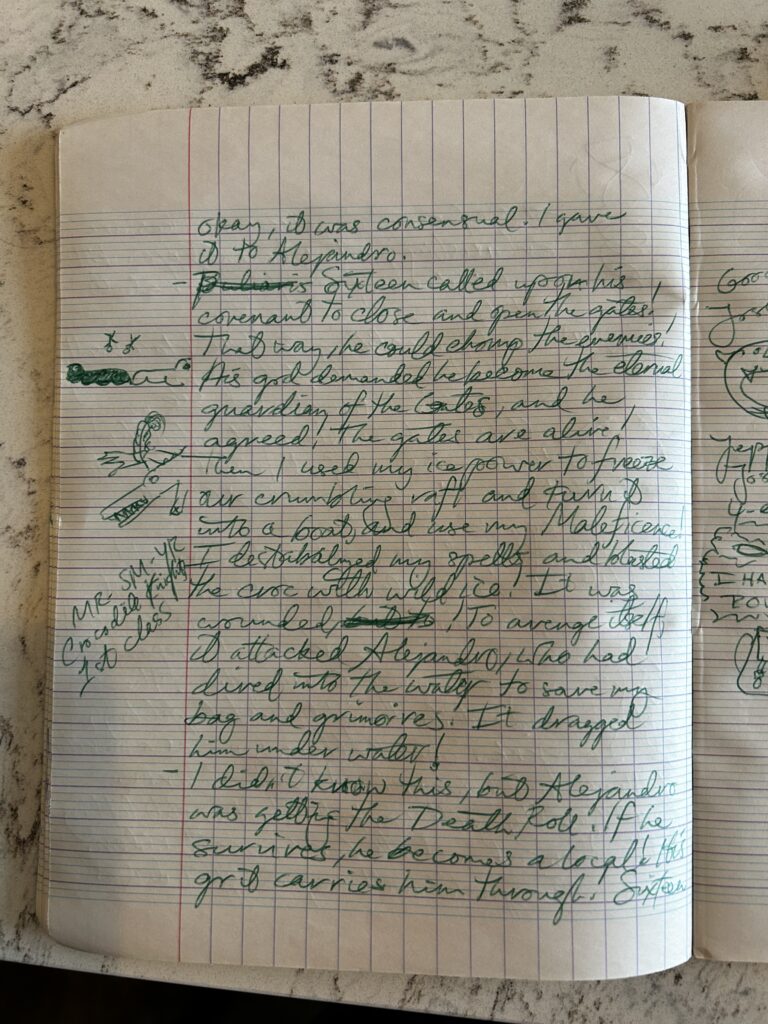 okay, it was consensual. I gave
it to Alejandro.
- is Sixteen called upon his
covenant to close and open the gates!
That way, he could chomp the enemies!
His god demanded he become the eternal
guardian of the Gates, and he
agreed! The gates are alive!
Then I used my ice power to freeze
our crumbling raft and turn it
into a boat, and use my Maleficence!
I destabalized my spells and blasted
the croc with wild ice! It was
wounded! To avenge itself,
it attacked Alejandro, who had
dived into the water to save my
bag and grimoires. It dragged
him under water!
- I didn't know this, but Alejandro
was getting the Death Roll! If he
survives, he becomes a local! His
grit carries him through. Sixteen
MR. SM-YR
Crocodile Knight
1st class
Good
I HA
POW